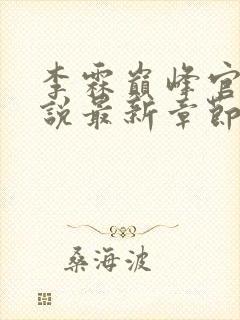 李霖巅峰官
说最新章節
桑海波